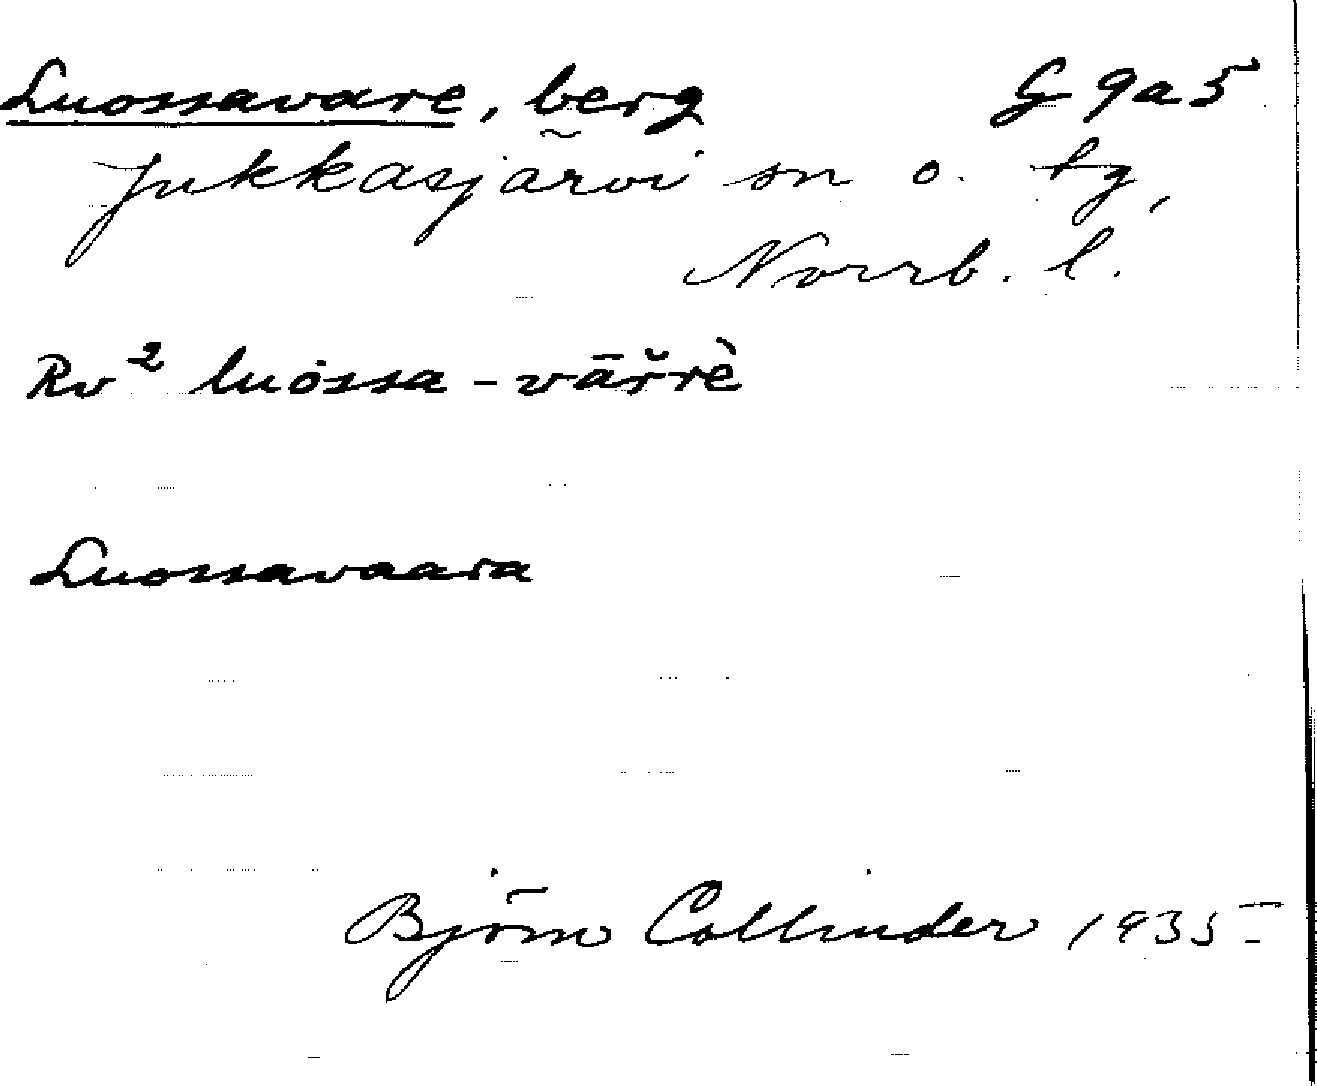 Luossavare, berg G 9a5
Jukkasjärvi sn o. tg,
Norrb. l.
Rv² luossa-vāřrè
Luossavaara
Björn Collinder 1935